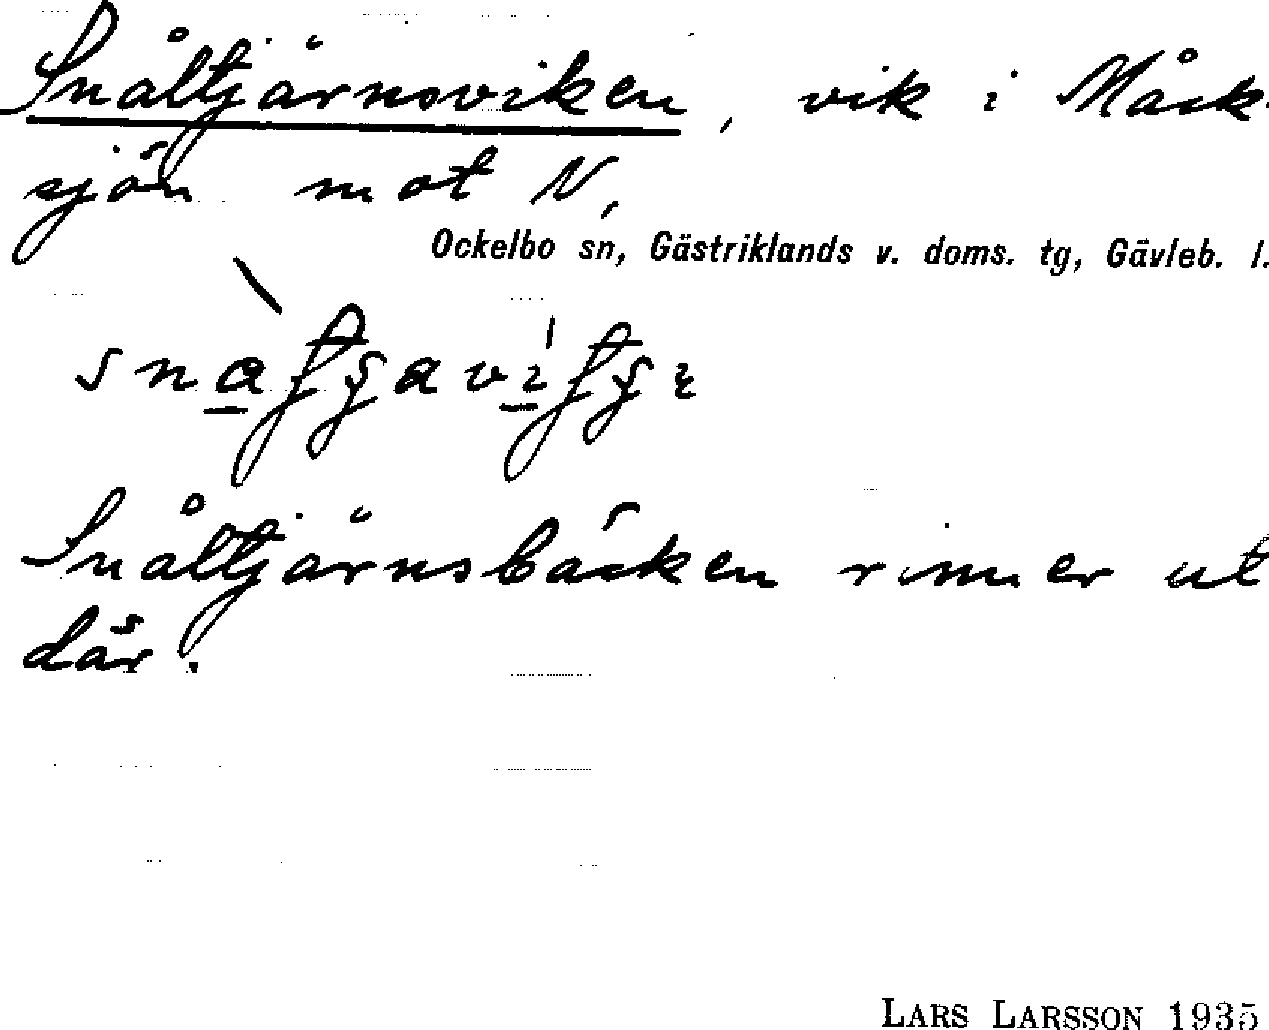 Snåltjärnsviken, vik i Måck-
sjön mot N,
Ockelbo sn, Gästriklands v. doms. tg, Gävleb. l.
Snåltjärnsbäcken rinner ut
där.
LARS LARSSON 1935